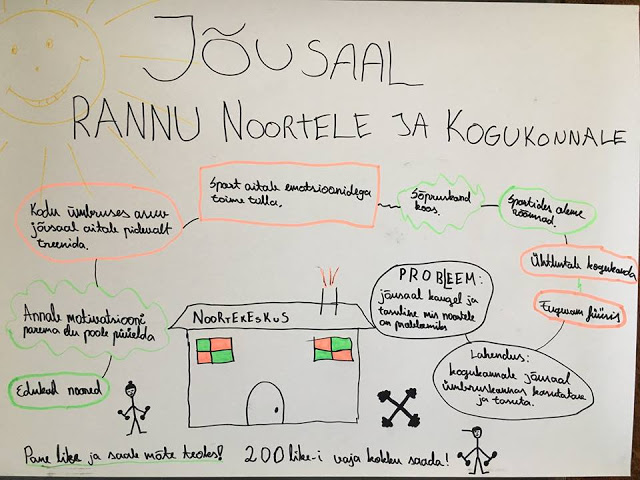 JÕUSAAL
RANNU NOORTELE JA KOGUKONNALE
Sport aitab emotsioonidega
toime tulla.
Sõpruskond
koos.
Sportides oleme
rõõmsad.
Ühtlustab kogukonda
Tugevam füüsis
Kodu ümbruses asuv
jõusaal aitab pidevalt
treenida.
Annab motivatsiooni
parema elu poole püüelda
Edukad noored
NOORTEKESKUS
PROBLEEM:
jõusaal kaugel ja
tasuline mis noortele
on probleemiks
Lahendus:
kogukonnale jõusaal
ümbruskonnas kasutatav
ja tasuta.
Pane like ja saab mõte teoks! 200 like-i vaja kokku saada!